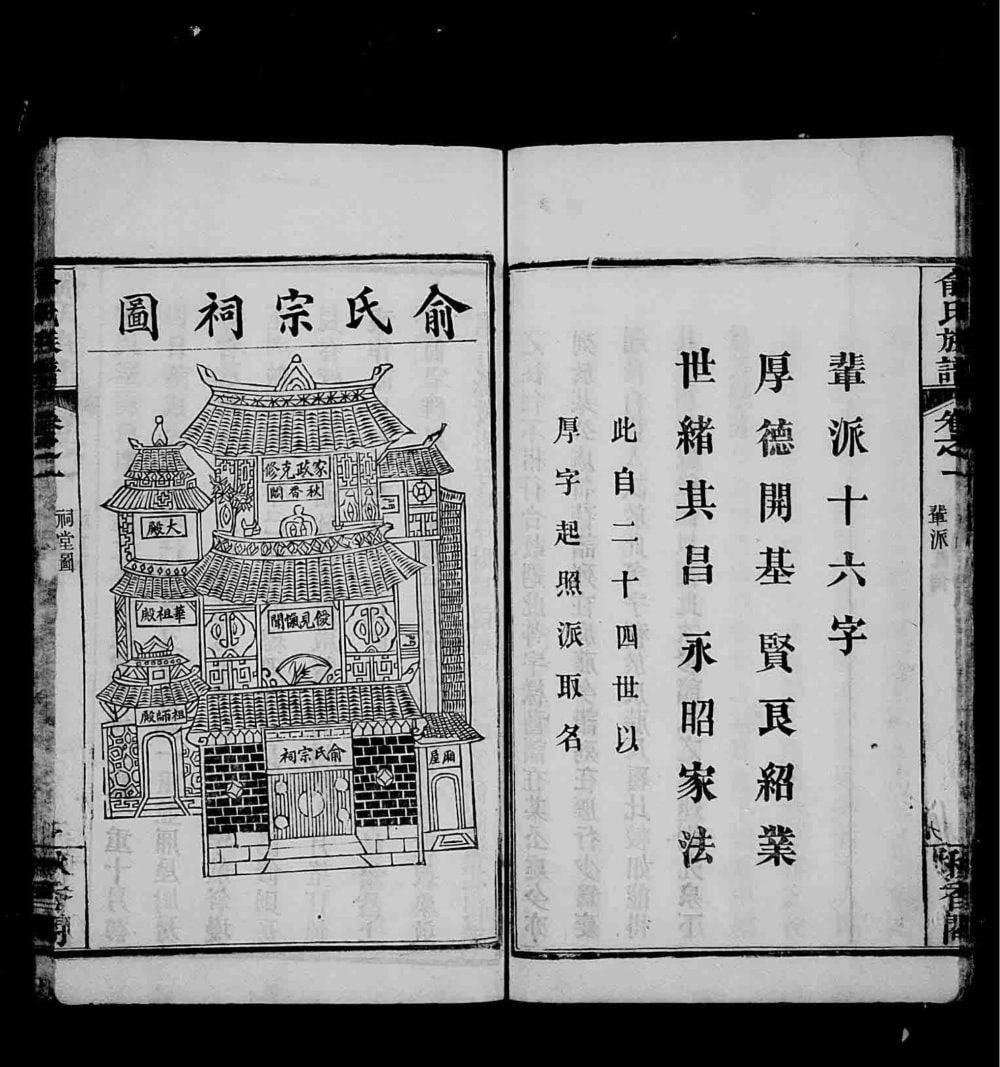 俞氏族譜
卷之一
輩派
秋香閣
輩派十六字
厚德開基 賢良紹業
世緒其昌 永昭家法
此自二十四世以
厚字起照派取名
俞氏宗祠圖
家政克修
秋香閣
大殿
僾見愾聞
華祖殿
祖師殿
俞氏宗祠
廂屋
祠堂圖